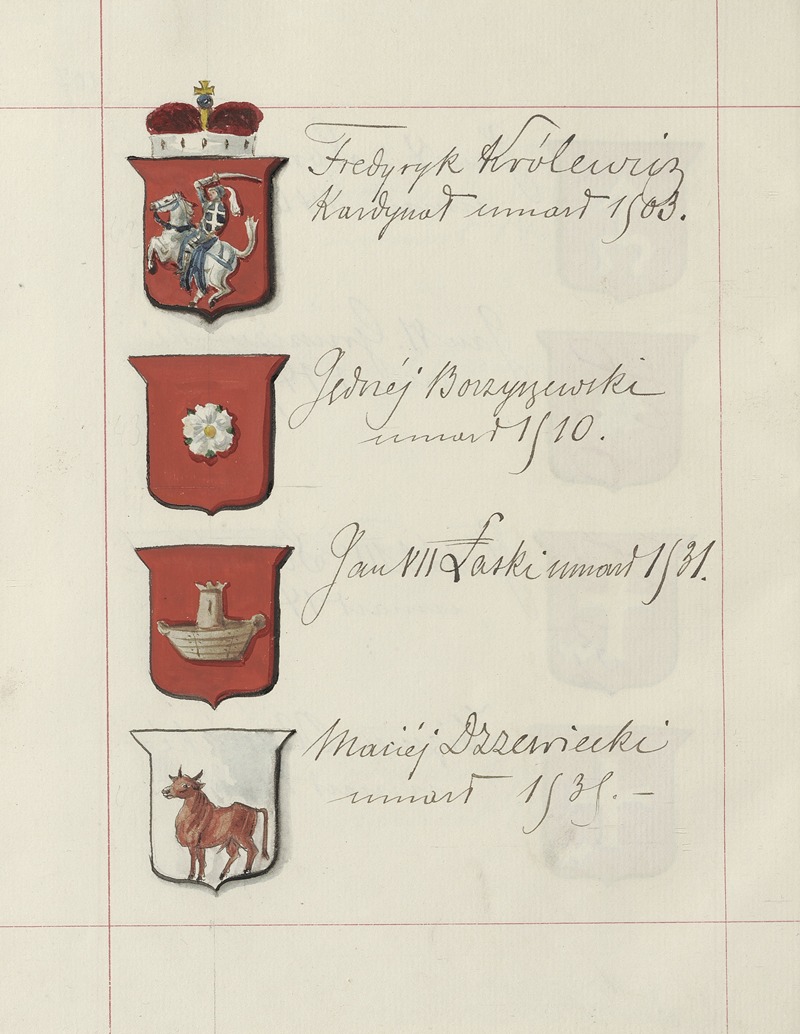 Fredyryk Królewicz
Kardynał umarł 1503.
Jędrzéj Borzyszewski
umarł 1510.
Jan VII Łaski umarł 1531.
Maciéj Drzewiecki
umarł 1535. –